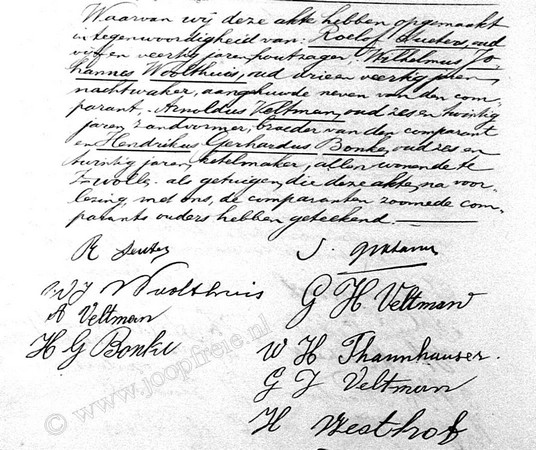 Waarvan wij deze akte hebben opgemaakt
in tegenwoordigheid van: Roelof Deuten, oud
vijf en veertig jaren, houtzager, Wilhelmus Jo-
hannes Woolthuis, oud drie en veertig jaren,
nachtwaker, aangehuwde neven van den com-
parant, Arnoldus Veltman, oud zes en twintig
jaren, zandvormer, broeder van den comparant
en Hendrikus Gerhardus Bonke, oud zes en
twintig jaren, ketelmaker, allen wonende te
Zwolle. als getuigen, die deze akte, na voor-
lezing met ons, de comparanten zoomede com-
parants ouders hebben geteekend.
R
W J Woolthuis
A Veltman
H G Bonke
G H Veltman
W H Thannhauser.
G J Veltman
H Westhof
© www.joopfreie.nl